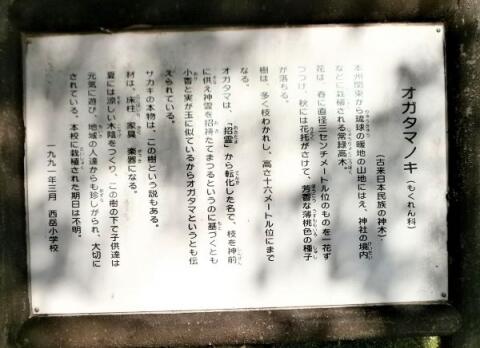 オガタマノキ（もくれん科）
（古来日本民族の神木）
本州関東から琉球の暖地の山地にはえ、神社の境内
などに栽植される常緑高木。
花は、春に直径三センチメートル位のものを一花ず
つつけ、秋には花托がさけて、芳香な薄桃色の種子
が落ちる。
樹は、多く枝わかれし、高さ十六メートル位にまで
なる。
オガタマは、「招霊」から転化した名で、枝を神前
に供え神霊を招祷たてまつるというのに基づくとも
小香と実が玉に似ているからオガタマというとも伝
えられている。
サカキの本物は、この樹という説もある。
材は、床柱 家具 楽器になる。
夏には涼しい木陰をつくり、この樹の下で子供達は
元気に遊び、地域の人達からも珍しがられ、大切に
されている。本校に栽植された期日は不明。
一九九一年三月 西岳小学校